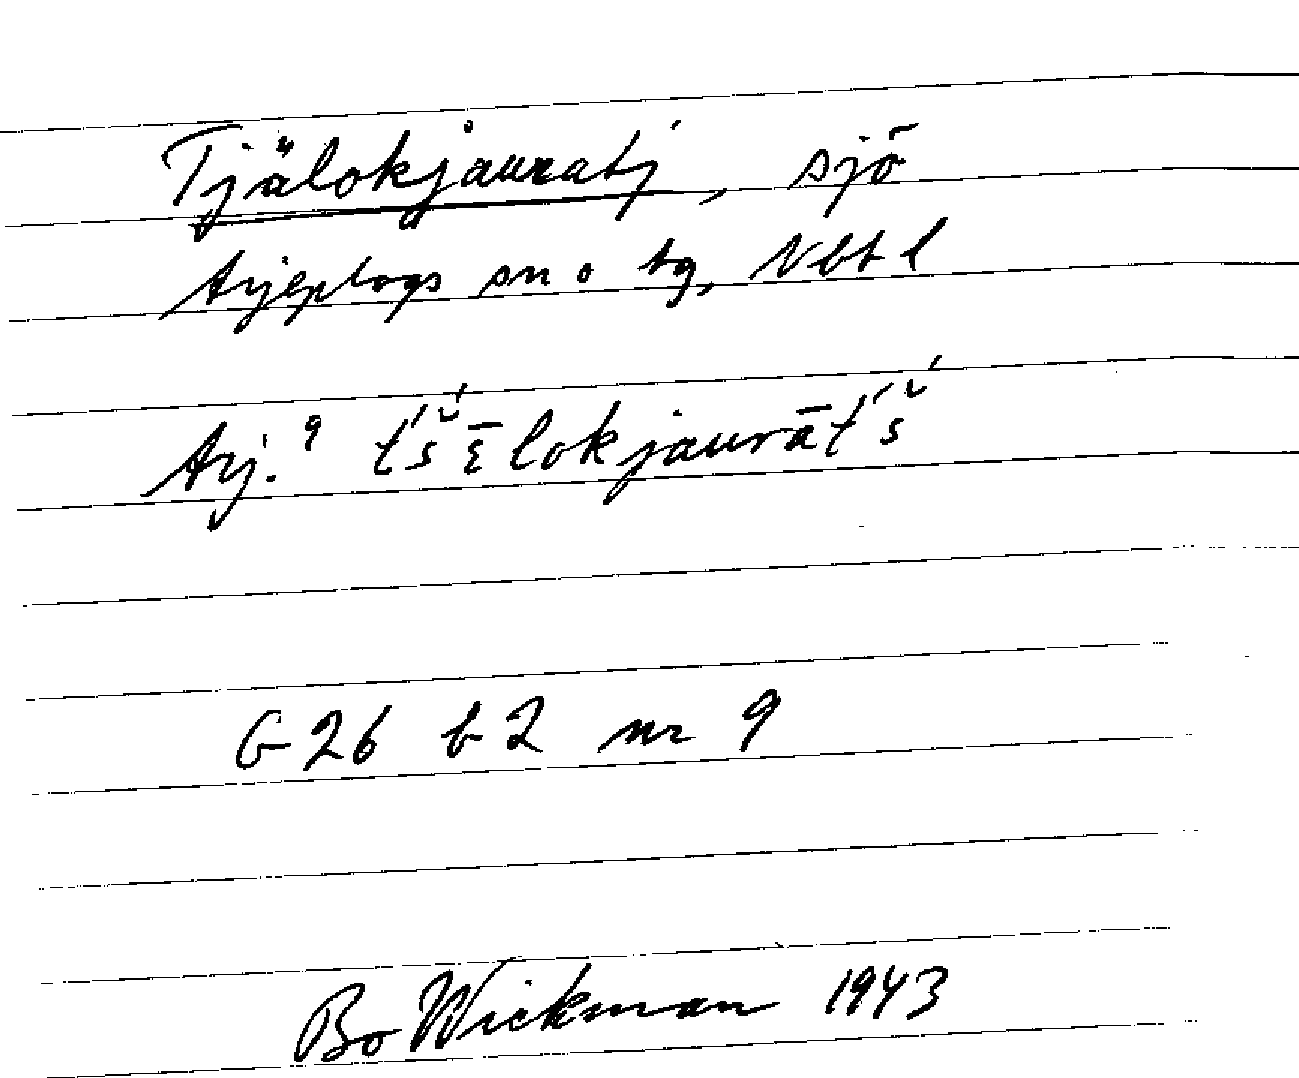 Tjälokjauratj, sjö
Arjeplogs sn o tg, Vbt l
Arj. 9 t́š́ε̄lokjaurāt́š́
G 26 b 2 nr 9
Bo Wickman 1943